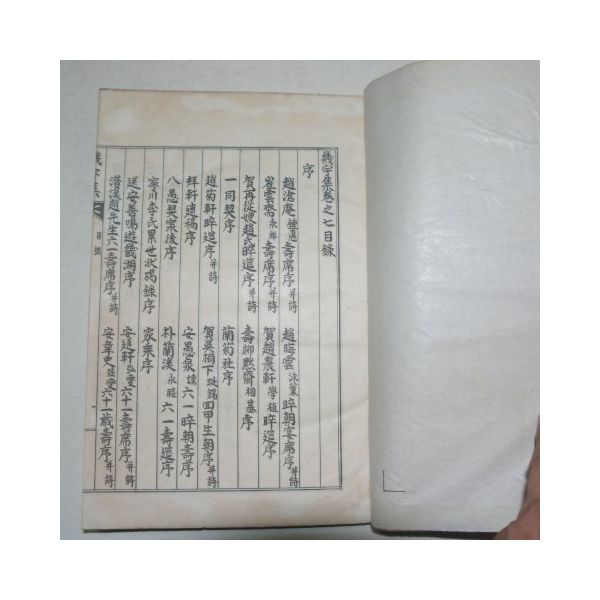 幾宇集卷之七目錄
序
趙滄庵鏞惪壽席序并詩 趙晦雲泳翼晬朝宴席序并詩
崔雲齋永祚壽席序并詩 賀趙農軒學植晬筵序
賀再從嫂趙氏晬筵序并詩 壽柳默齋相基序
一同契序 蘭菊社序
趙菊軒晬筵序并詩 賀吳桐下 四甲生朝序并詩
拜軒遺稿序 安愚泉 六一晬朝壽序
八愚契案後序 朴蘭溪永 六一壽筵序
寧川李氏累世狀碣錄序 家乘序
送安善鳴遊畿湖序 安進軒弘燮六十一壽席序并詩
潛溪趙先生六一壽席序并詩 安韋史 燮六十一歲壽序并詩
幾宇集 目錄